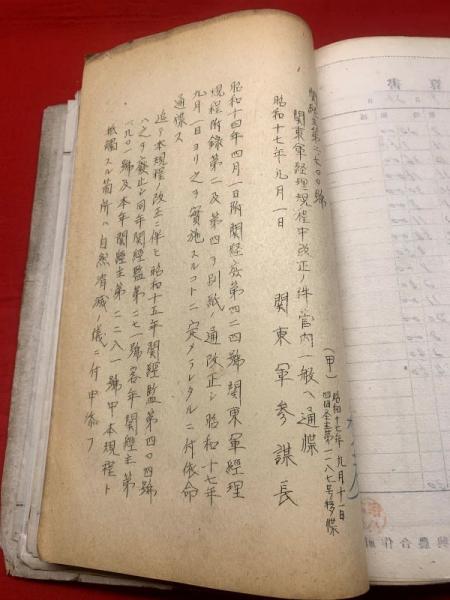 関経主第二七〇〇號
関東軍経理規程中改正ノ件管内一般ヘ通牒
(甲)
昭和十七年九月十一日
四日主第一一八七号移牒
昭和十七年九月一日
関東軍参謀長
昭和十四年四月一日附関経衣第四二四號関東軍経理
規程附録第二及第四ヲ別紙ノ通改正シ昭和十七年
九月一日ヨリ之ヲ實施スルコトニ定メラレタルニ付依命
通牒ス
追テ本規程ノ改正ニ伴ヒ昭和十五年関経監第四〇四號
ハ之ヲ廃止シ同年関経監第二七一號客年関経主第
一九〇一號及本年関経主第二二八一號中本規程ト
抵觸スル箇所ハ自然消滅ノ儀ニ付申添フ
算書